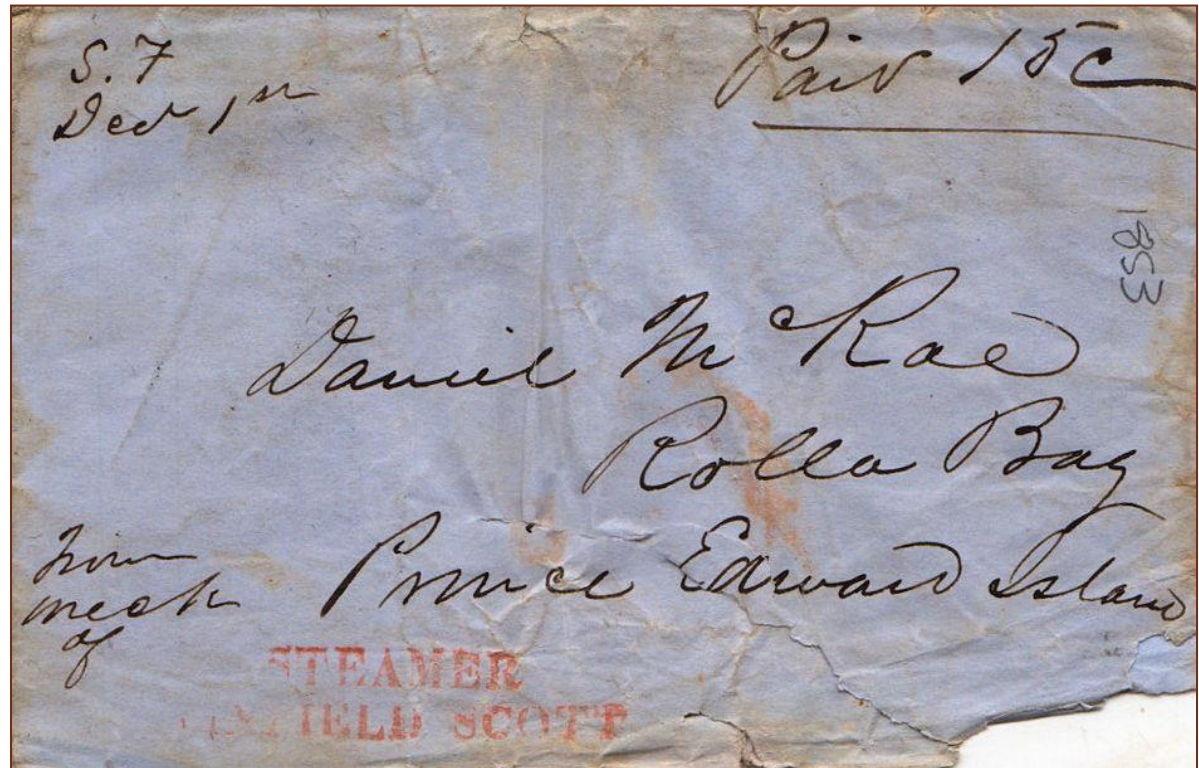 S. F
Dec 1st
Paid 15c
1853
Daniel Mc Rae
Rollo Bay
Prince Edward Island
from
wreck
of
STEAMER
WINFIELD SCOTT